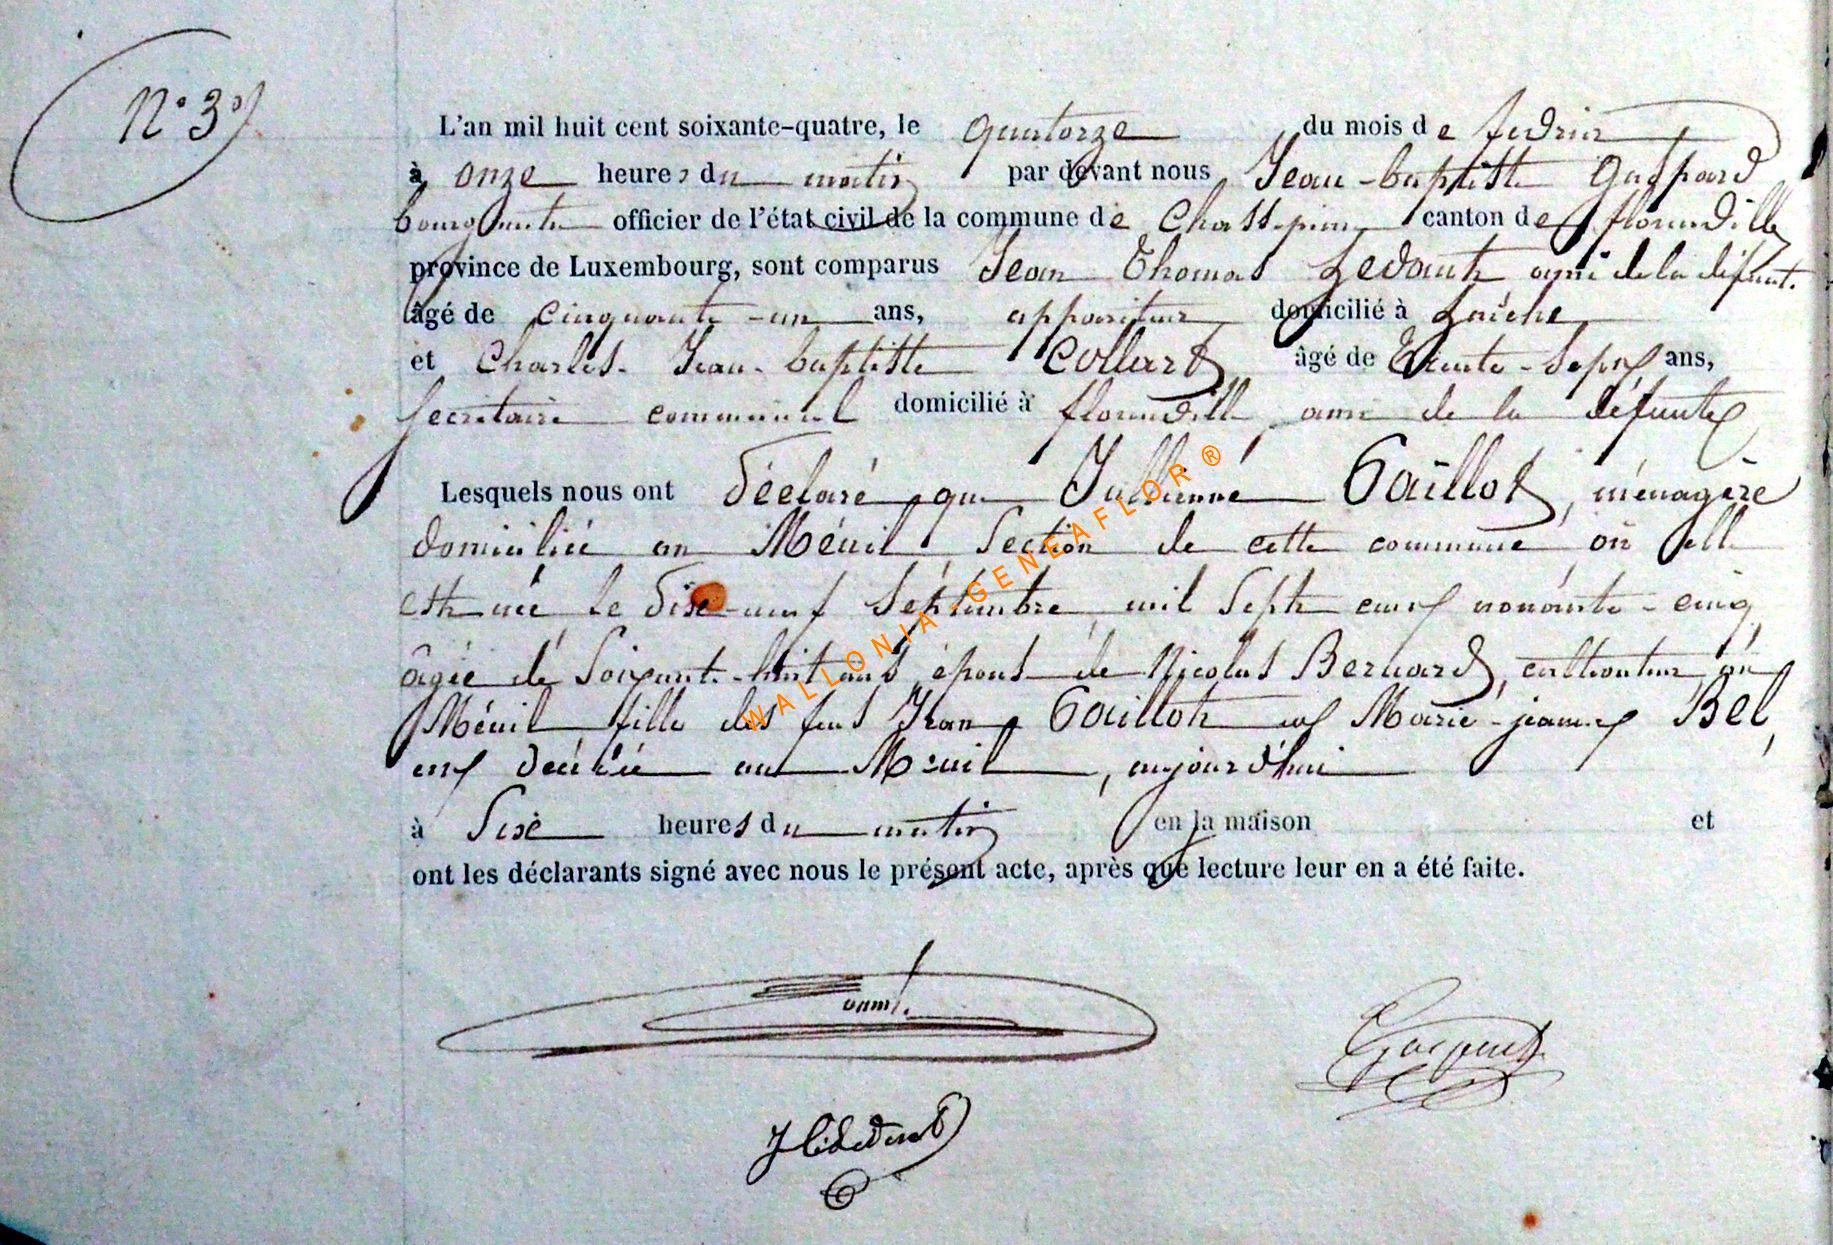 N° 3
L'an mil huit cent soixante-quatre, le quatorze du mois de fevrier
à onze heures du matin par devant nous Jean-baptiste Gaspard
bourgmestre officier de l'état civil de la commune de Chassepierre canton de florenville
province de Luxembourg, sont comparus Jean Thomas Ledant ami de la défunt.
âgé de cinquante-un ans, appariteur domicilié à Laiche
et Charles-Jean-baptiste Collard âgé de Trente-sept ans,
secrétaire communal domicilié à florenville, ami de la défunte
Lesquels nous ont déclaré que Jullienne Gaillot, ménagère
domiciliée au Ménil, Section de cette commune, où elle
est née le dix-neuf Septembre, mil Sept cent nonante-cinq,
âgée de Soixante-huit ans, épouse de Nicolas Bernard, cultivateur, au
Ménil fille des feus Jean Gaillot et Marie-jeanne Bel,
est décédée au Menil, aujourd'hui
à Six heures du matin en la maison et
ont les déclarants signé avec nous le présent acte, après que lecture leur en a été faite.
Gaspard
WALLONIA GENEAFLOR ®